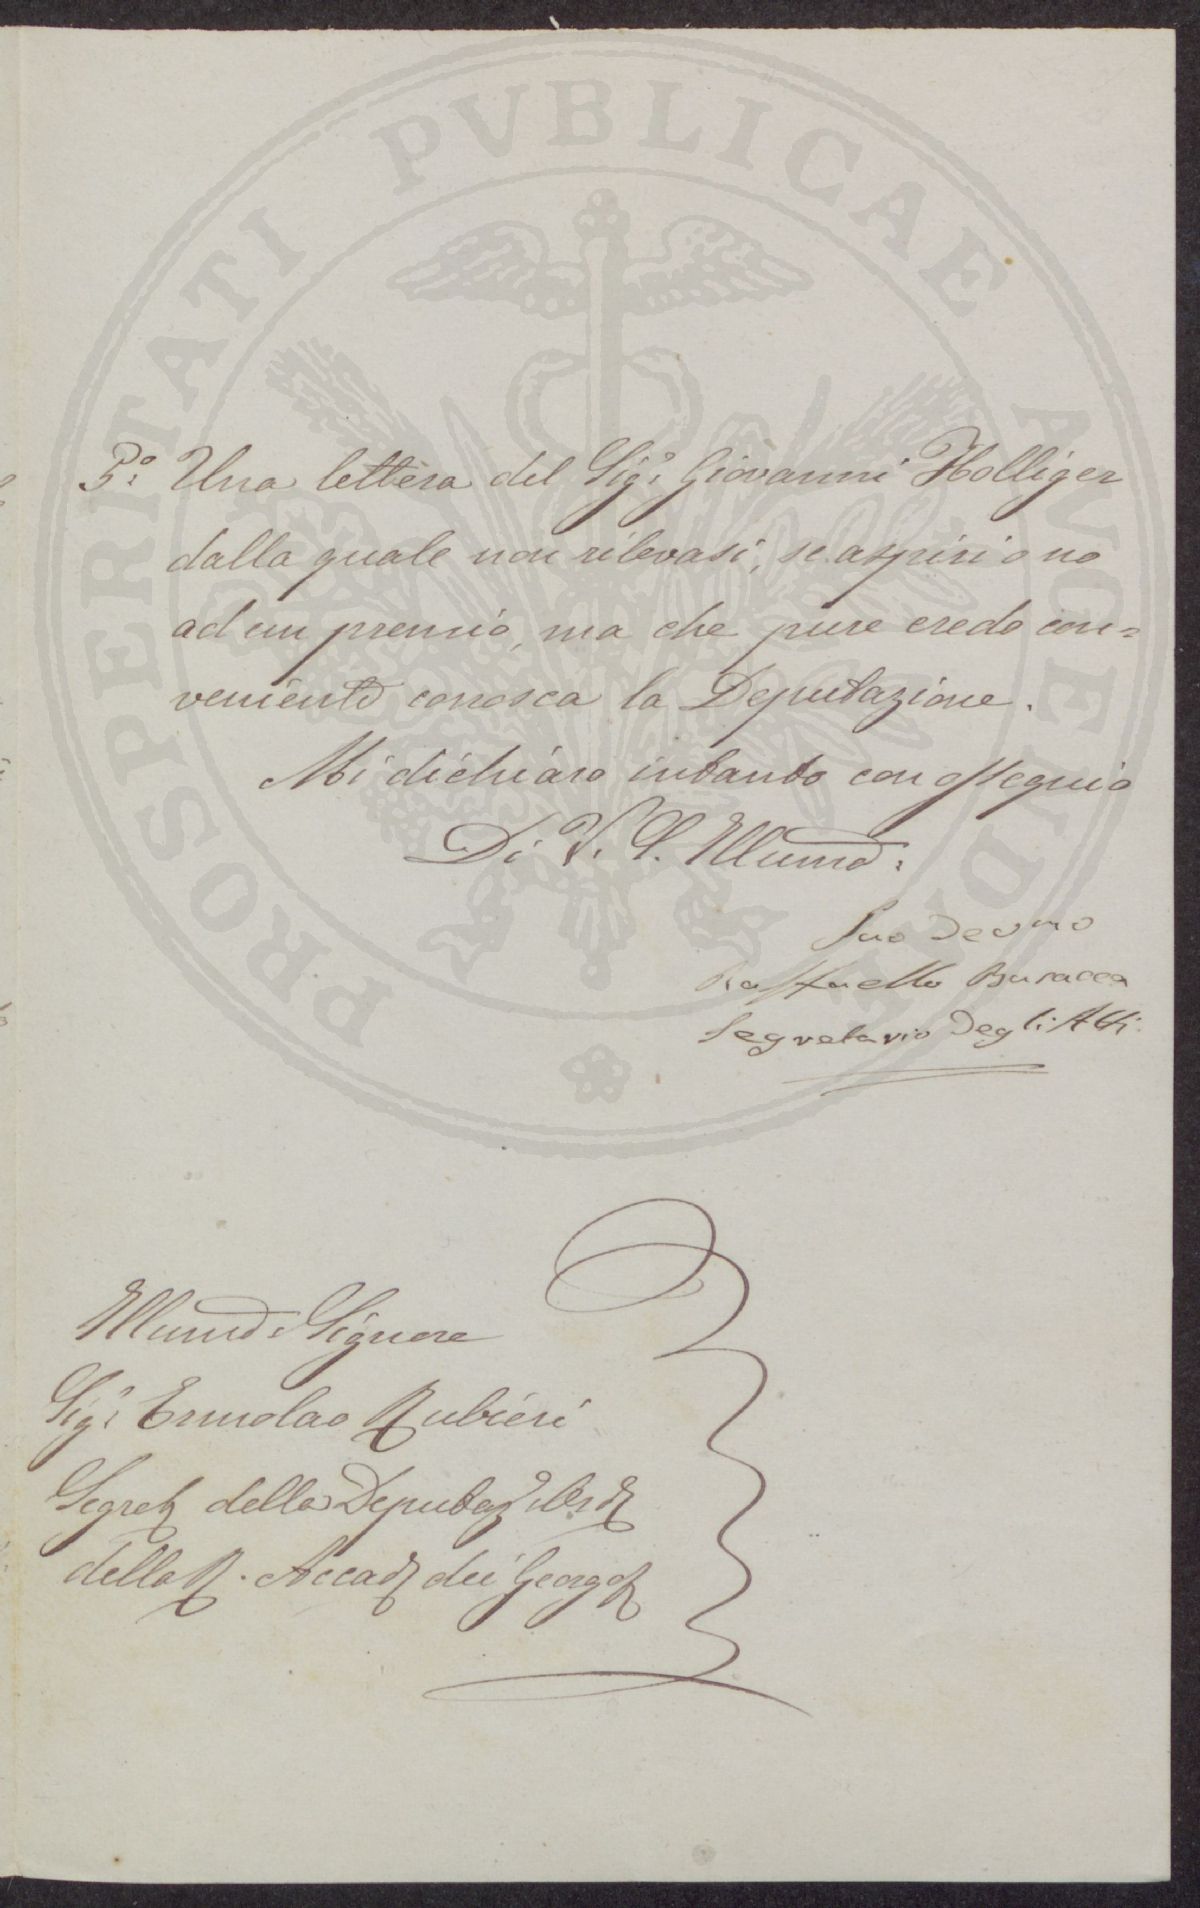 PROSPERITATI PVBLICAE AVGENDAE
3.° Una lettera del Sig.r Giovanni Holliger
dalla quale non rilevasi, se aspiri o no
ad un premio, ma che pure credo con=
veniente conosca la Deputazione.
Mi dichiaro intanto con ossequio
Di V. S. Illuma.
Suo Devmo
Raffaello Busacca
Segretario Degli Atti
Illumo. Signore
Sig.r Ermolao Rubieri
Segret della Deputaz
della R. Accad dei Georgof